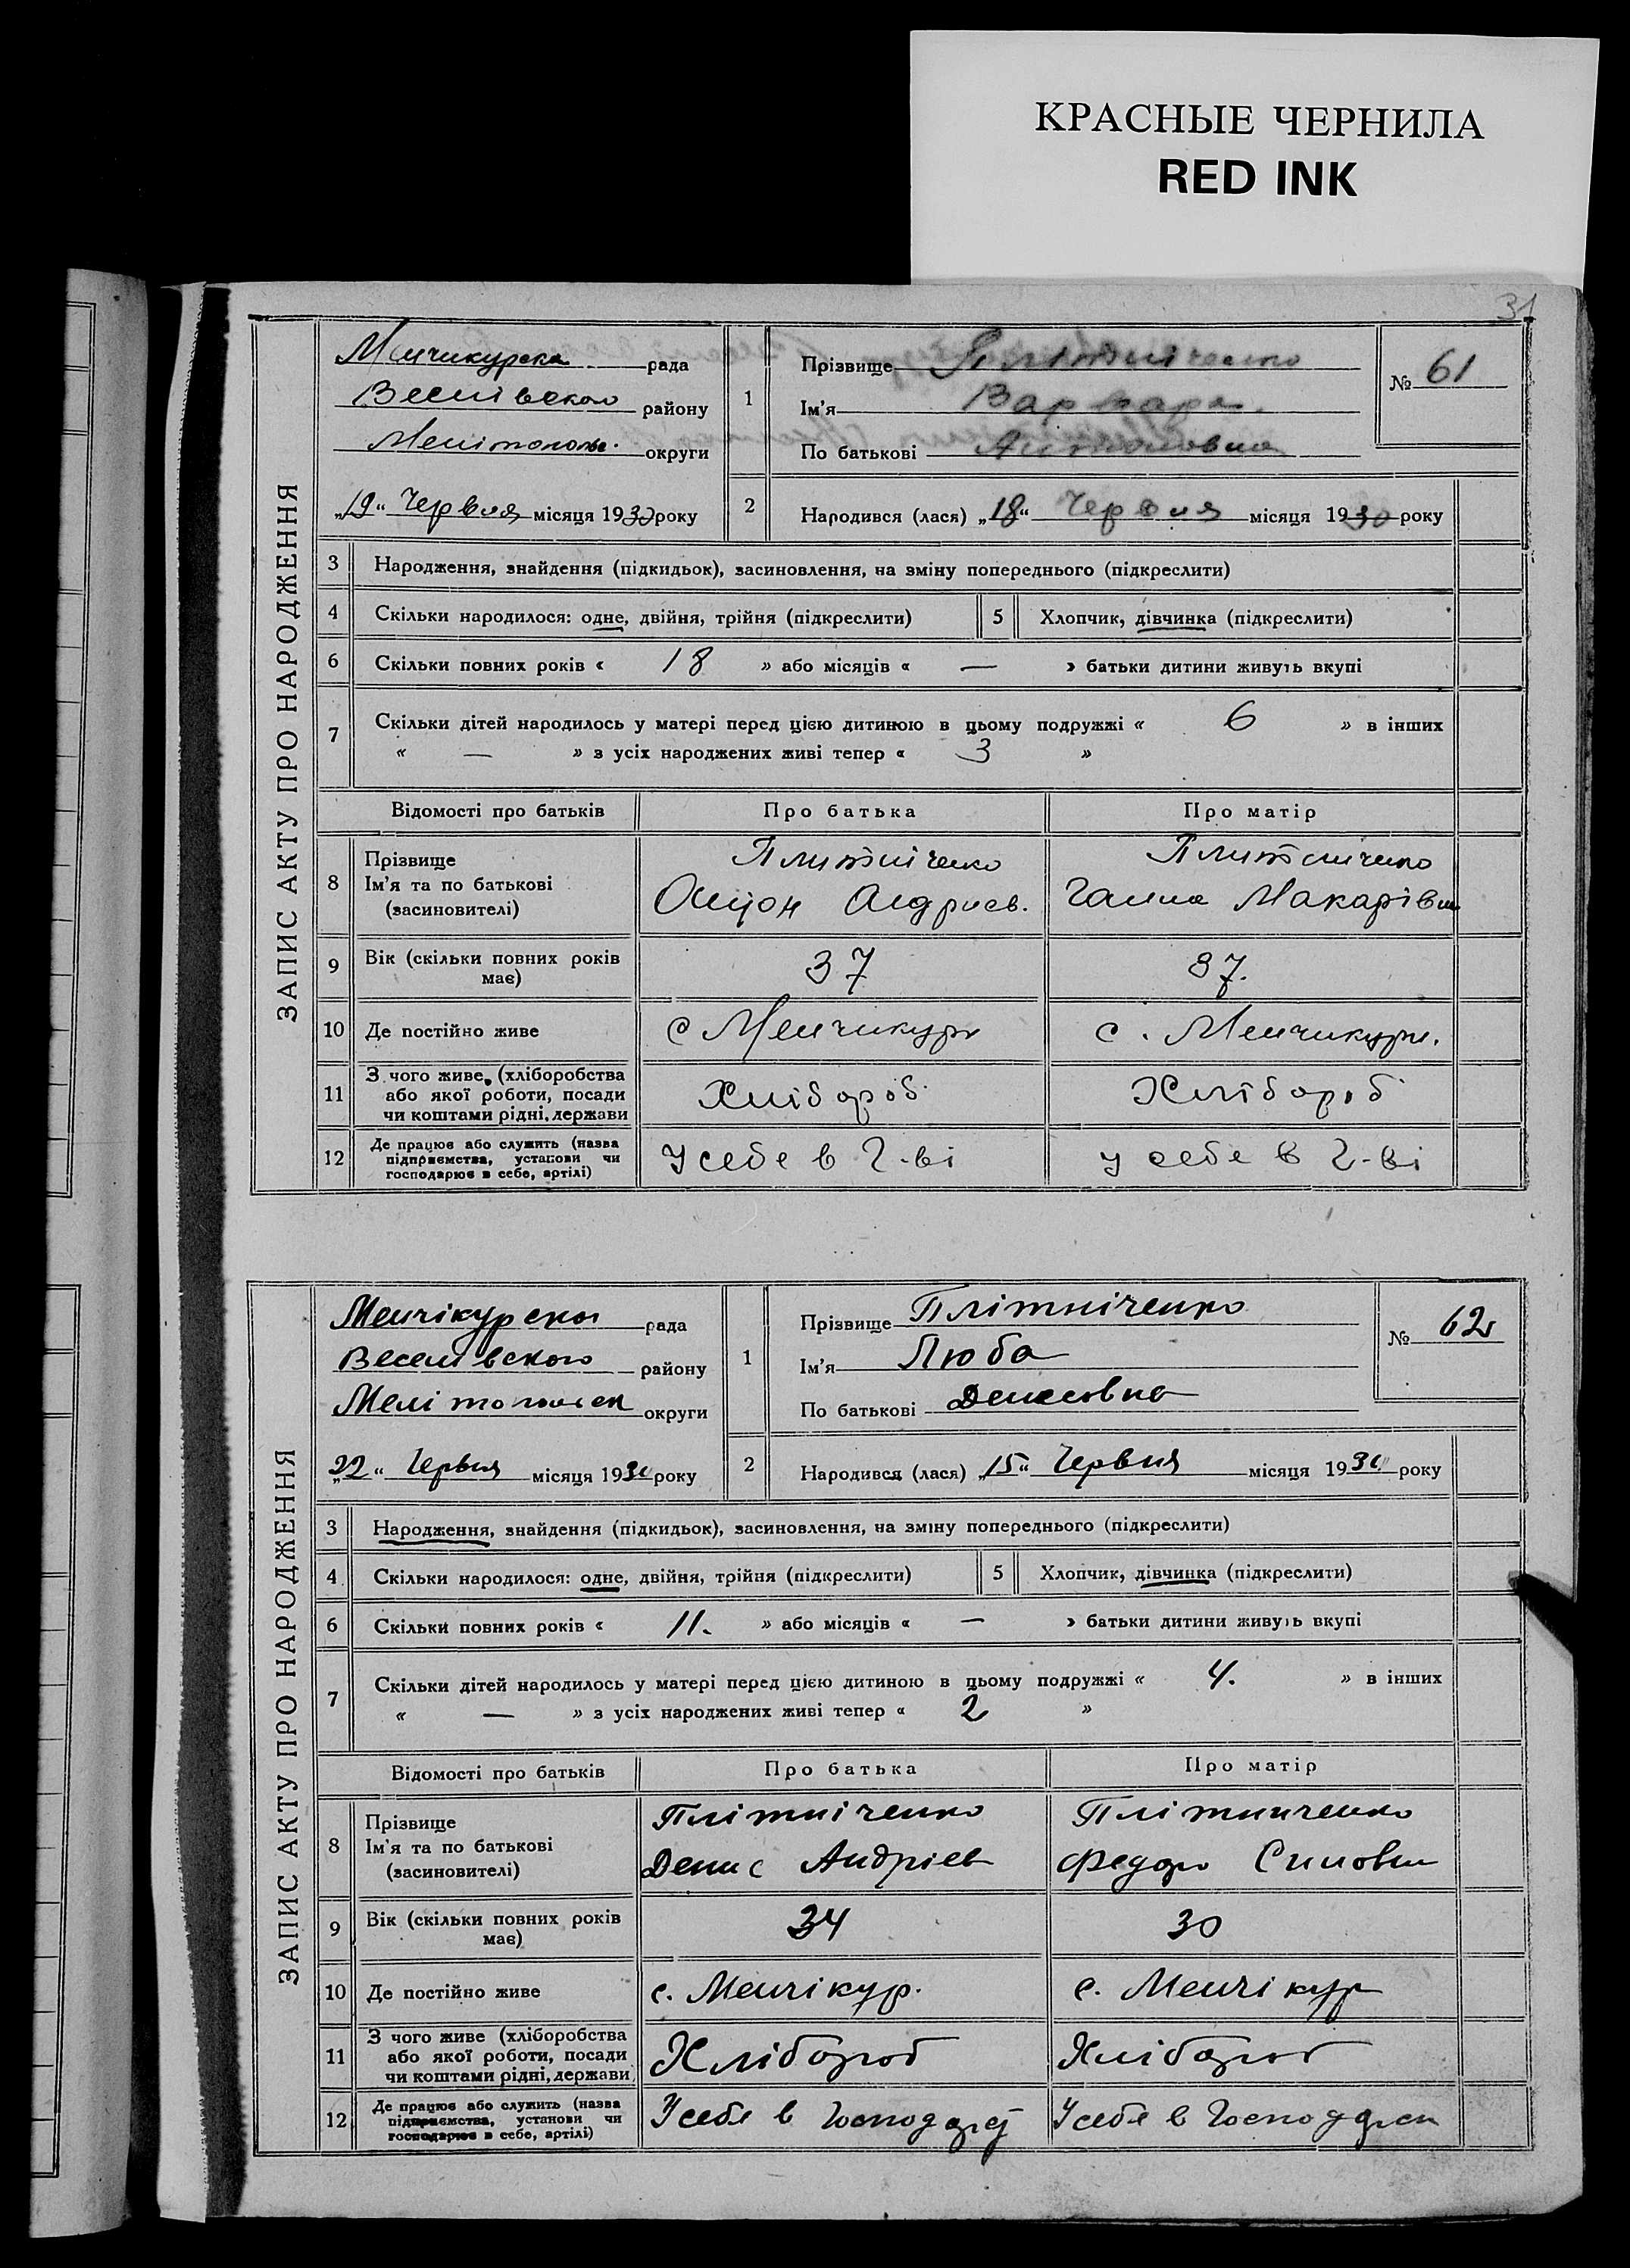 КРАСНЫЕ ЧЕРНИЛА
RED INK
31
ЗАПИС АКТУ ПРО НАРОДЖЕННЯ
Менчикурска рада
Веселівского району
Мелітополь. округи
„19“ Червня місяця 1930 року
1 Прізвище Плітніченко
Ім'я Варвара
По батькові Антоновна
№ 61
2 Народився (лася) „18“ Червня місяця 1930 року
3 Народження, знайдення (підкидьок), засиновлення, на зміну попереднього (підкреслити)
4 Скільки народилося: одне, двійня, трійня (підкреслити) 5 Хлопчик, дівчинка (підкреслити)
6 Скільки повних років « 18 » або місяців « — » батьки дитини живуть вкупі
7 Скільки дітей народилось у матері перед цією дитиною в цьому подружжі « 6 » в інших
« — » з усіх народжених живі тепер « 3 »
Відомості про батьків Про батька Про матір
8 Прізвище
Ім'я та по батькові
(засиновителі)
Плитніченко
Андриев.
Плитніченко
Ганна Макарівн
9 Вік (скільки повних років
має) 37 37.
10 Де постійно живе с Менчикури с. Менчикури.
11 З чого живе, (хліборобства
або якої роботи, посади
чи коштами рідні, держави
Хлібороб Хлібороб
12 Де працює або служить (назва
підприємства, установи чи
господарює в себе, артілі)
У себе в Г-ві у себе в Г-ві
ЗАПИС АКТУ ПРО НАРОДЖЕННЯ
Менчікурска рада
Веселівского району
Мелітопольск округи
„22“ Червня місяця 1930 року
1 Прізвище Плітніченко
Ім'я Люба
По батькові Денисовна
№ 62
2 Народився (лася) „15“ Червня місяця 1930 року
3 Народження, знайдення (підкидьок), засиновлення, на зміну попереднього (підкреслити)
4 Скільки народилося: одне, двійня, трійня (підкреслити) 5 Хлопчик, дівчинка (підкреслити)
6 Скільки повних років « 11. » або місяців « — » батьки дитини живуть вкупі
7 Скільки дітей народилось у матері перед цією дитиною в цьому подружжі « 4. » в інших
« — » з усіх народжених живі тепер « 2 »
Відомості про батьків Про батька Про матір
8 Прізвище
Ім'я та по батькові
(засиновителі)
Плітніченко
Денис Андріев
Плітниченко
9 Вік (скільки повних років
має) 34 30
10 Де постійно живе с. Менчікур. с. Менчікур
11 З чого живе (хліборобства
або якої роботи, посади
чи коштами рідні, держави
Хлібороб Хлібороб
12 Де працює або служить (назва
підприємства, установи чи
господарює в себе, артілі)
У себе в Господар У себе в Господарси